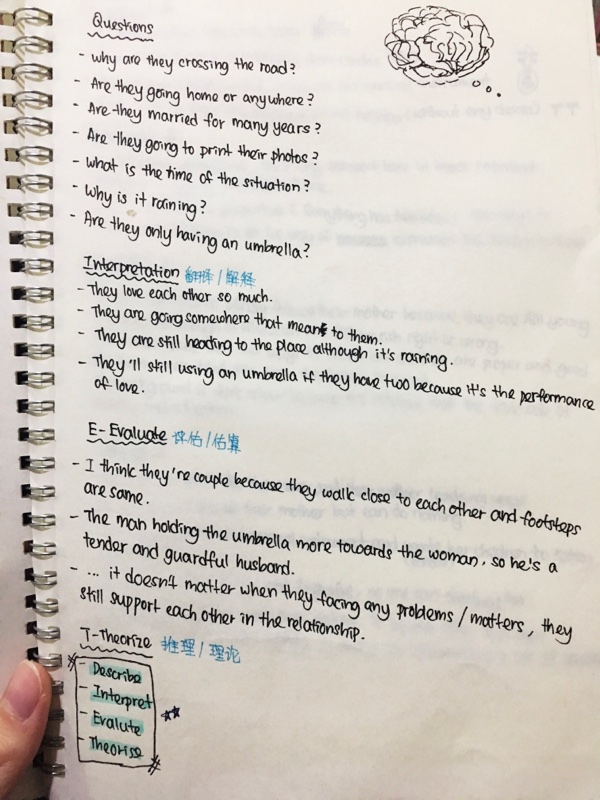 Questions
- why are they crossing the road?
- Are they going home or anywhere?
- Are they married for many years?
- Are they going to print their photos?
- what is the time of the situation?
- Why is it raining?
- Are they only having an umbrella?
Interpretation 翻译/解释
- They love each other so much.
- They are going somewhere that means to them.
- They are still heading to the place although it's raining.
- They'll still using an umbrella if they have two because it's the performance
of love.
E-Evaluate 评估/估算
- I think they're couple because they walk close to each other and footsteps
are same.
- The man holding the umbrella more towards the woman, so he's a
tender and guardful husband.
- ... it doesn't matter when they facing any problems / matters, they
still support each other in the relationship.
T-Theorize 推理/理论
- Describe
- Interpret
- Evalute
- Theorise